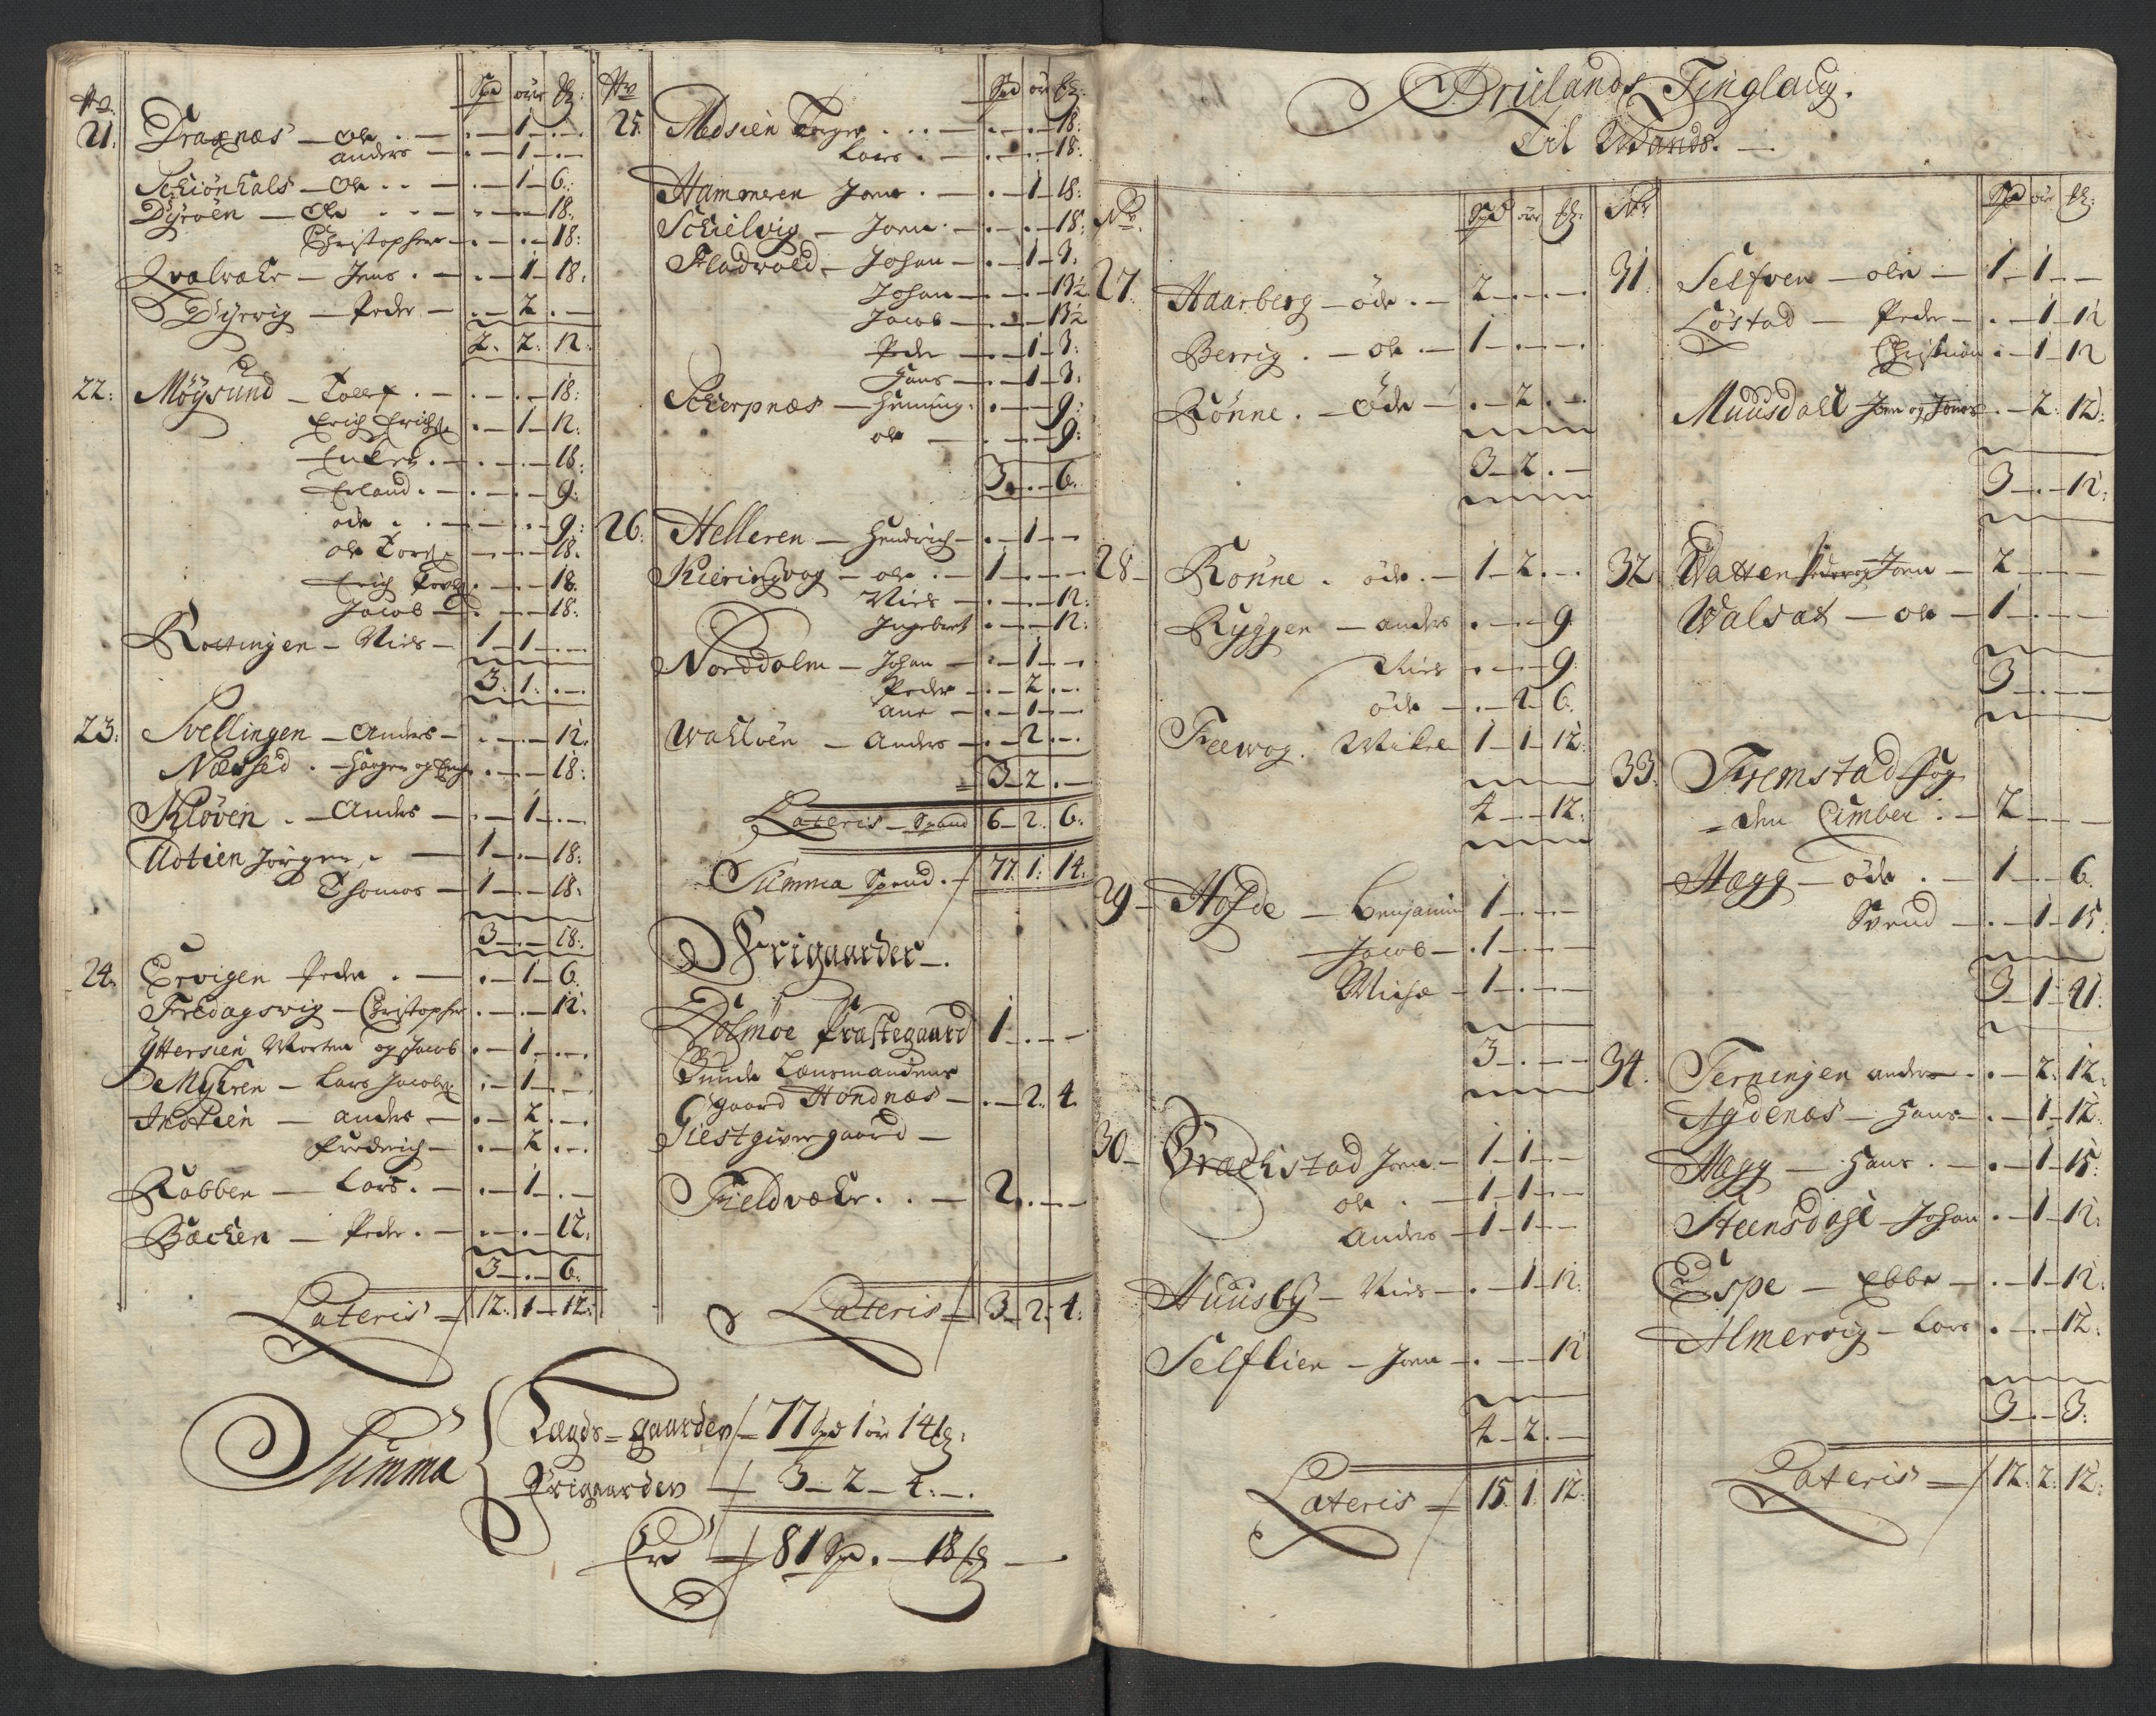 No Spd öre ℔:
21. Draxnæs – Ole . – . – 1 – . –
anders – . – 1 – . –
Schiönhals – Ole . . – . – 1 – 6:
Dyrøen – Ole . . – . – . – 18:
Christopher – . – . – 18:
Qvalvahr – Jens . – . – 1 – 18:
Dyrvig – Peder – . – 2 . –
2. 2: 12:
22: Möysund – Tollef . – . – . – 18:
Erich Erichs: . – 1 – 12:
. – . – 18:
Erland . – . – . – 9:
öde . . – . – . – 9:
ole Tores: – . – 18.
Erich . – . – 18.
Jacob – . – . – 18:
Rottingen – Niels – 1 – 1 – . –
3: 1: . –
23: Svellingen – Anders – . – . – 12:
Næssed . – Haagen og . – . – 18:
Kløven . – Anders – . – 1 – . –
Udtien Jörgen . – 1 – . – 18:
Thomas – 1 – . – 18:
3 – . – 18:
24. Ervigen Peder . – . – 1 – 6.
Fredagsvig – Christopher . – . – 12:
Yttersien Morten og Jacob . – 1 – . –
De Myhren – Lars Jacobs: . – 1 – . –
Indtien – anders – . – 2 – . –
Friderich – . – 2 – . –
Rabben – Lars . – . – 1 – . –
Bachen – Peder . – . – . – 12:
3 – . – 6:
Lateris – 12: 1 – 12:
No Spd ör ℔:
25. Medsien Torger . . . – . – . – 18:
Lars . – . – . – 18:
Hammeren Jens . – . – 1 – 18:
Schielvig – Joen . – . – . – 18:
Fladvald – Johan – . – 1 – 3.
Johan – . – . – 13½
Jacob – . – . – 13½
Peder – . – 1 – 3:
Hans – . – 1 – 3:
Scherpnæs – Henning . . – . – 9:
ole – . – . – 9:
3 . – 6.
26: Helleren – Hendrich – . – 1 – –
Kieringvog – ole . – 1 – . – . –
Niels – . – . – 12:
Ingebret . – . – 12:
Norddalm – Johan – . – 1 – –
Peder – . – 2 . – .
ane – . – 1 – . –
Wahlöen – Anders – . – 2 . – .
3 – 2 . –
Lateris – Spand 6 – 2. 6:
Summa Spand . – 77. 1: 14.
Frigaarder – .
Dolmöe Præstegaard 1 . – . –
Bunde Lensmandens
gaard Hondnæs – . – 2. 4.
Giestgiver gaard –
Fieldvæhr . . – 2 . – . –
Lateris = 3 – 2: 4:
Summa
Lægds = gaarden – 77 Spd 1 ör 14 ℔:
Frigaarden – 3 – 2 – 4: – .
Er – 81 Spd . – 18 ℔ –
Ørielands Tinglaug.
Erl Wands. –
No. Spd ör ℔:
27. Haarberg – öde . – 2 – . – . –
Berrig . – ole . – 1 – . – . –
Rönne . – Öde – . – 2 . –
3 – 2 . –
28 – Rönne . öde . – 1 – 2 . – .
Ryggen – anders . – . – 9
Niels . – . – 9:
öde – . – 2 – 6:
Feewog . Mikel 1 – 1 – 12:
4 – . – 12:
29 – Hofde – Benjamin 1 – . – . –
Jacob – . 1 – . – . –
Michel – 1 – . – . –
3 – . – . –
30 – Brækstad Joen – 1 – 1 – –
ole . – 1 – 1 – –
Anders – 1 – 1 – –
Huusby – Niels – . – 1 – 12:
Selflien – Joen – . – – 12
4 – 2 . –
Lateris = 15. 1. 12:
No. Spd ör ℔:
31 Selfven – ole – 1 – 1 – –
Löstad – Peder – . – 1 – 12
Christian . – 1 – 12
Muusdall Joen og Jones . – 2: 12:
3 – . – 12:
32 Watten Peder og Joen – 2 – . – –
Walsat – ole – 1 – . – –
3 – . – –
33. Fremstad Sog
= den Cimber . – 2 – – –
Hægg – öde . – 1 – . – 6.
Svend – . – 1 – 15.
3 – 1 – 21:
34. Terningen anders – . – 2: 12:
Agdenæs – Hans – . – 1 – 12:
Hægg – Hans . – . – 1 – 15:
Steensdahl – Johan . – 1 – 12:
Espe – Ebbe – . – 1 – 12:
Almervig – Lars . – . – 12:
3 – . – 3:
Lateris = 12. 2: 12: